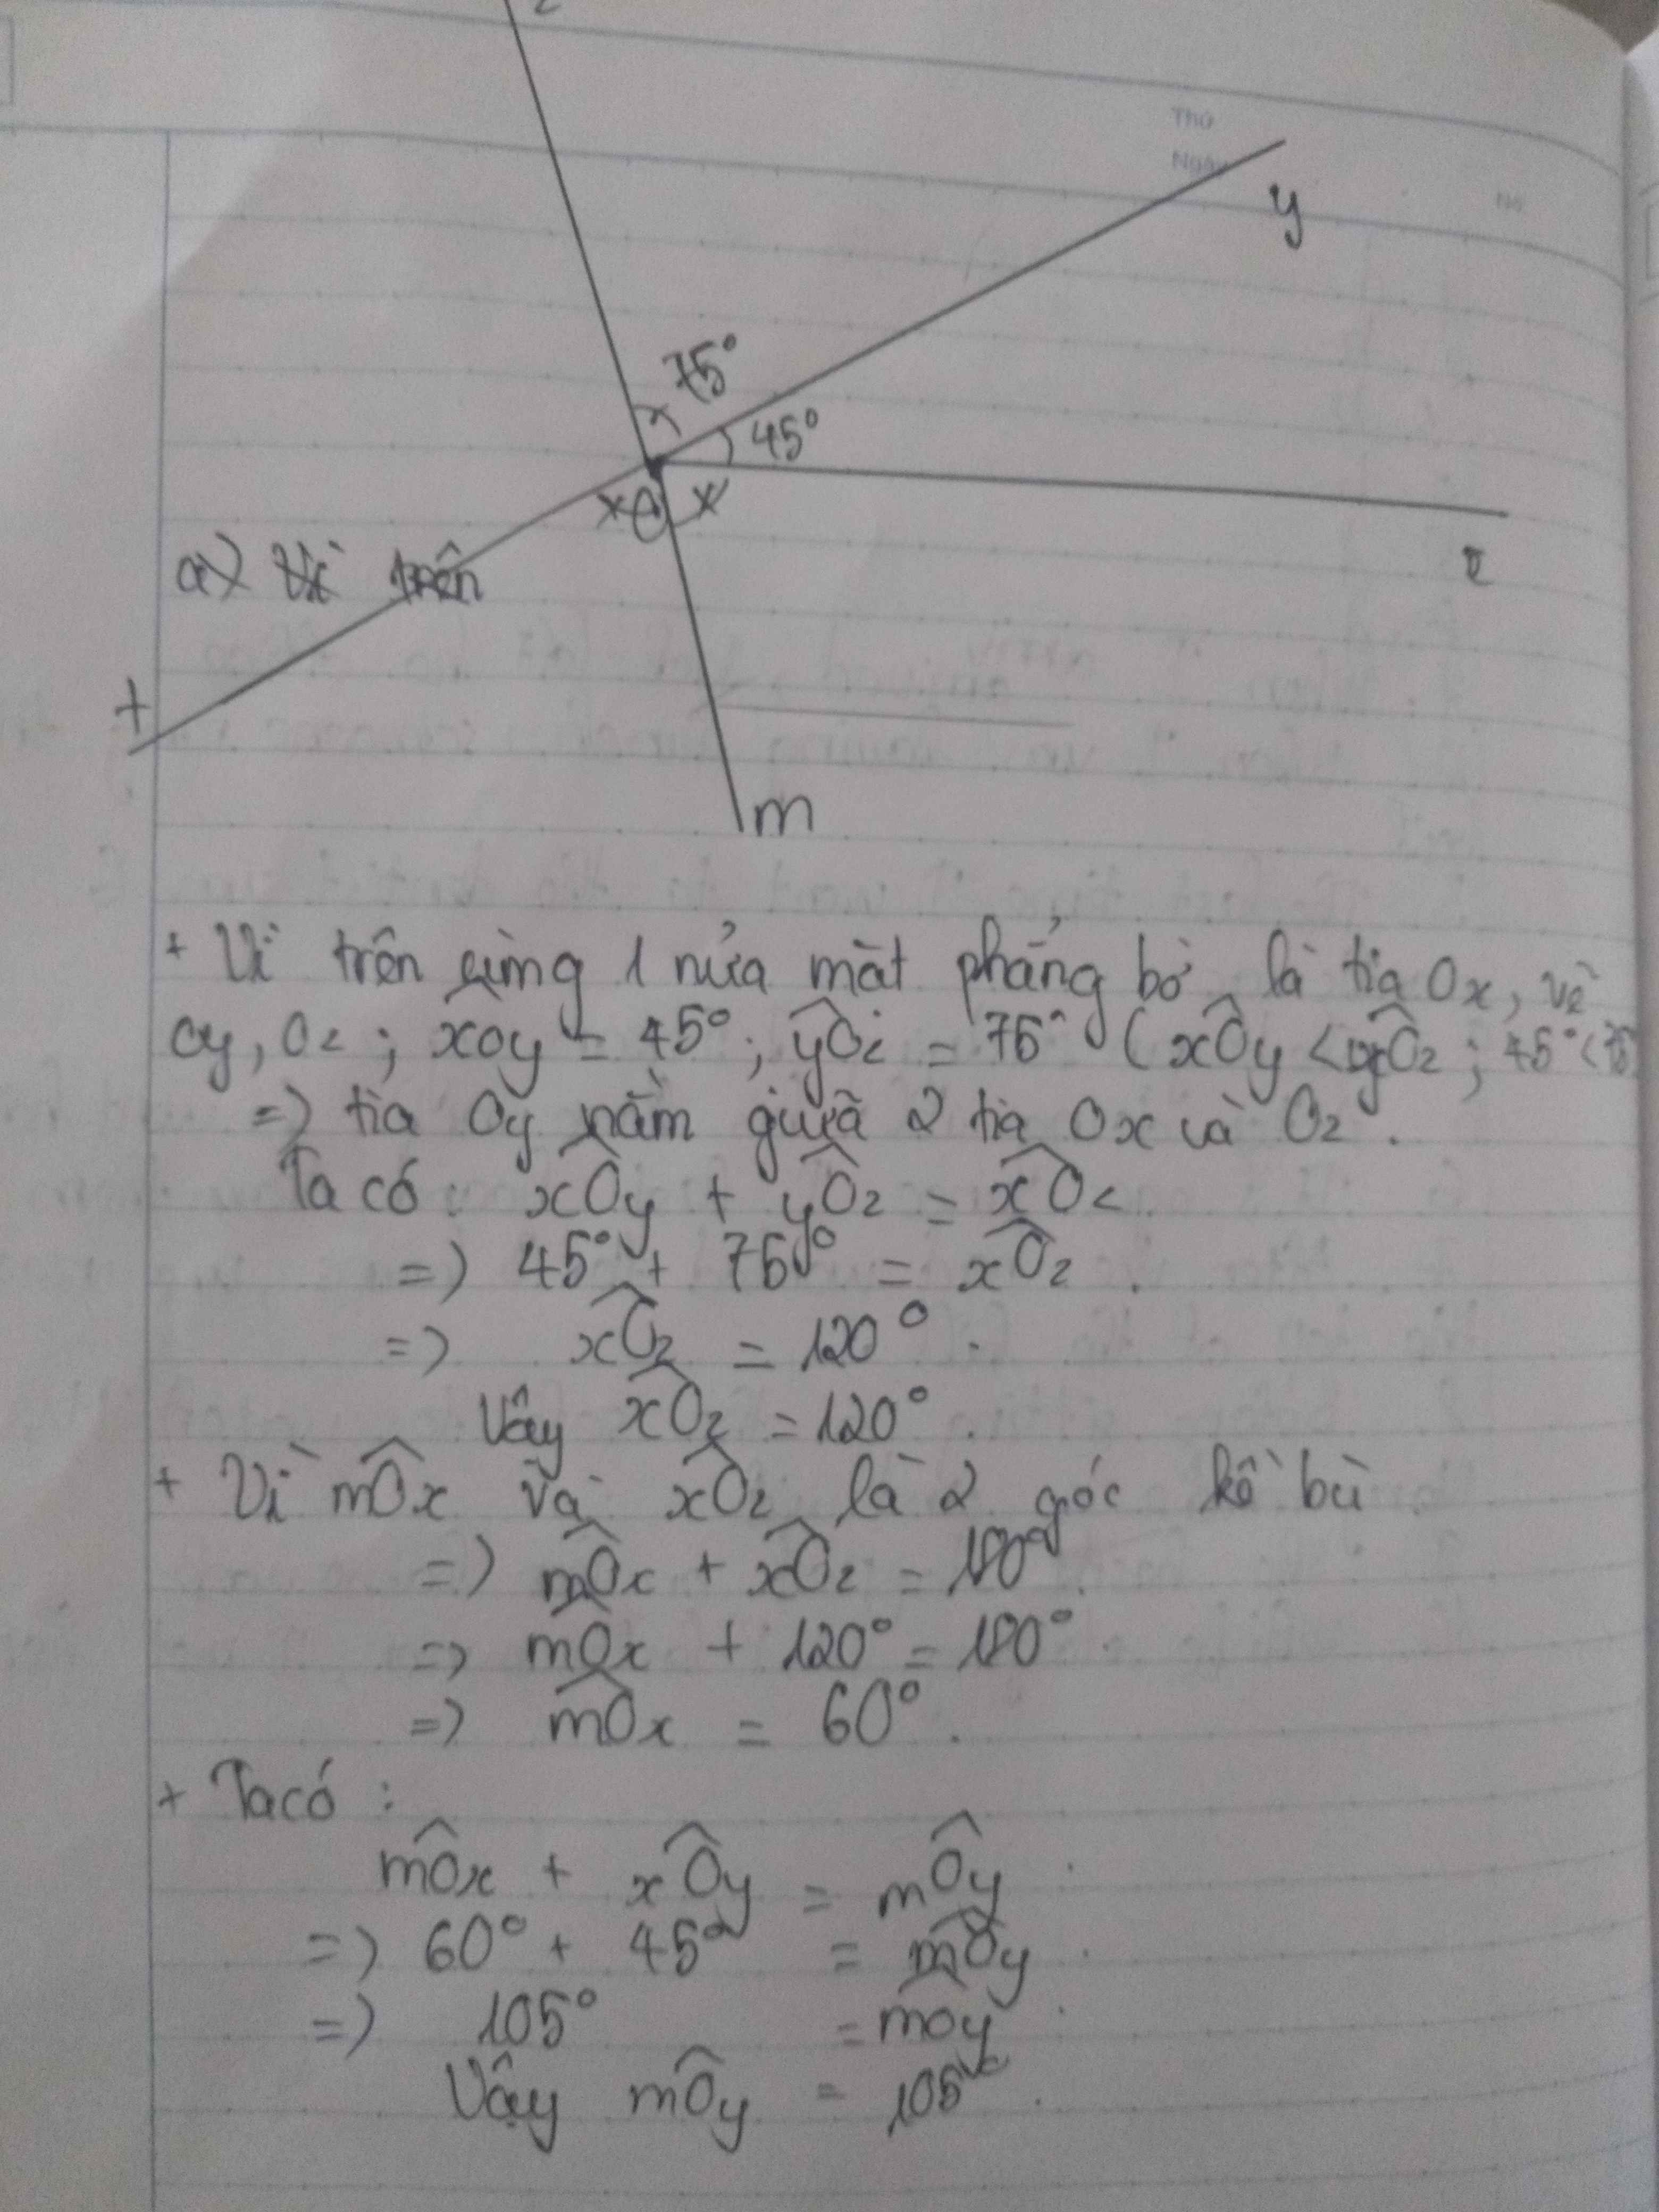 z
Thứ
Ngày
No
y
75°
45°
x O x
a) Vì trên
x
t
m
+ Vì trên cùng 1 nửa mặt phẳng bờ là tia Ox, vẽ
Oy, Oz; xOy = 45°; yOz = 75° (xOy < yOz; 45° < 75
=> tia Oy nằm giữa 2 tia Ox và Oz.
Ta có: xOy + yOz = xOz
=> 45° + 75° = xOz.
=> xOz = 120°.
Vậy xOz = 120°.
+ Vì mOx và xOz là 2 góc kề bù
=> mOx + xOz = 180°.
=> mOx + 120° = 180°.
=> mOx = 60°.
+ Ta có:
mOx + xOy = mOy.
=> 60° + 45° = mOy.
=> 105° = mOy.
Vậy mOy = 105°.